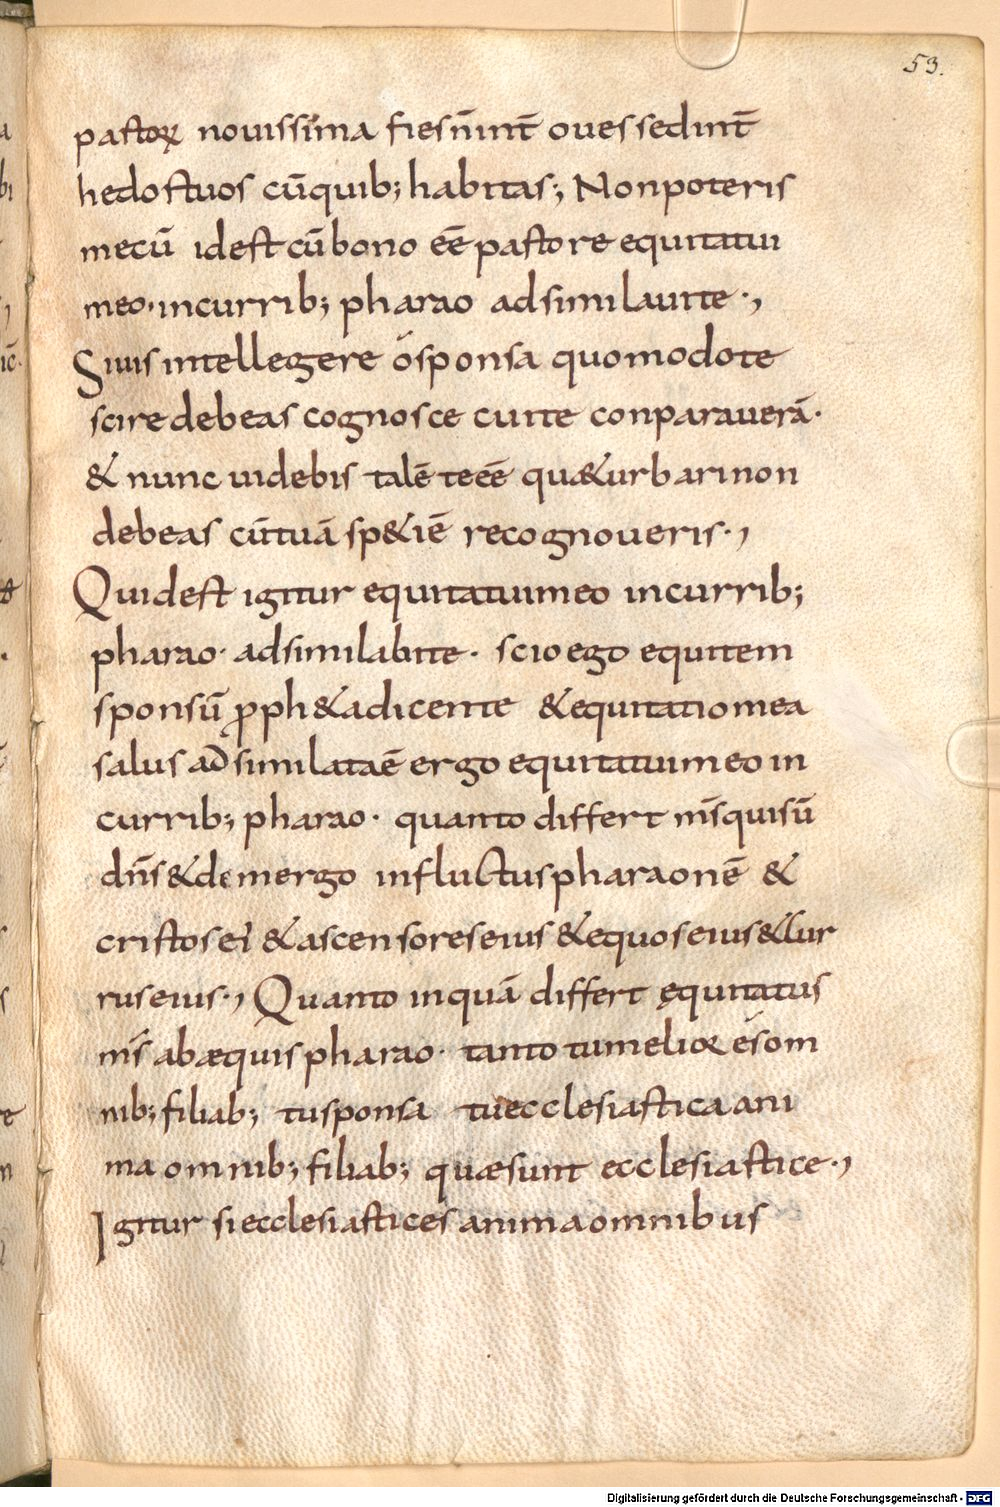 53.
pastorꝝ nouissima fies n̄ int̄ oues sed int̄
hedos tuos cū quib; habitas; Non poteris
mecū id est cū bono eē pastore equitatui
meo· in currib; pharao adsimilauite·,
Si uis intellegere ó sponsa quomodo te
scire debeas cognosce cui te conparauerā·
& nunc uidebis talē te eē qu&urbari non
debeas cū tuā sp&iē recognoueris·,
Quid est igitur equitatui meo in currib;
pharao· adsimilabi te· scio ego equitem
sponsū ꝓph&a dicente & equitatio mea
salus adsimilata ē ergo equitatui meo in
currib; pharao· quanto differt n̄s qui sū
dn̄s & demergo in fluctus pharaonē &
cristos ei & ascensores eius & equos eius & cur
rus eius·, Quanto inquā differt ęquitatus
m̄s ab æquis pharao· tanto tu melior és om
nib; filiab; tu sponsa tu ecclesiastica ani
ma omnib; filiab; quæ sunt ecclesiastice·,
Igitur si ecclesiastic es anima omnibus
Digitalisierung gefördert durch die Deutsche Forschungsgemeinschaft - DFG